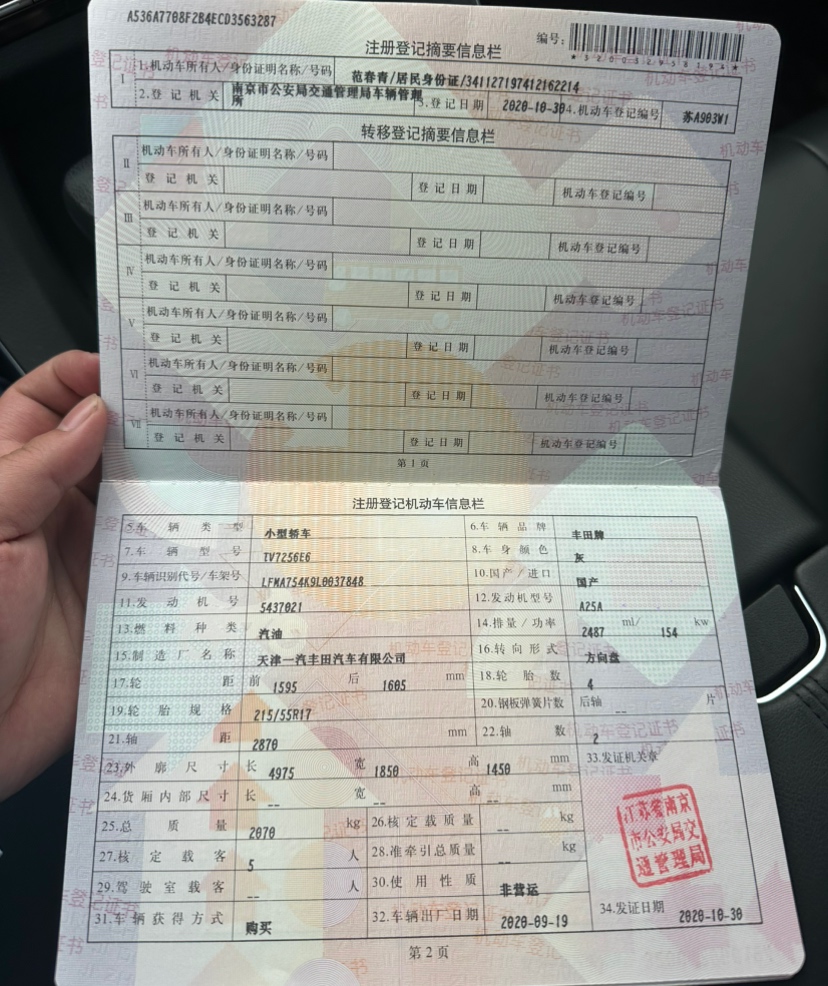 A536A7708F2B4ECD3563287
编号:
注册登记摘要信息栏
I 1.机动车所有人/身份证明名称/号码 范春青/居民身份证/341127197412162214
2.登记机关 南京市公安局交通管理局车辆管理所 3.登记日期 2020-10-30 4.机动车登记编号 苏A903W1
转移登记摘要信息栏
II 机动车所有人/身份证明名称/号码
登记机关 登记日期 机动车登记编号
III 机动车所有人/身份证明名称/号码
登记机关 登记日期 机动车登记编号
IV 机动车所有人/身份证明名称/号码
登记机关 登记日期 机动车登记编号
V 机动车所有人/身份证明名称/号码
登记机关 登记日期 机动车登记编号
VI 机动车所有人/身份证明名称/号码
登记机关 登记日期 机动车登记编号
VII 机动车所有人/身份证明名称/号码
登记机关 登记日期 机动车登记编号
第1页
注册登记机动车信息栏
5.车辆类型 小型轿车 6.车辆品牌 丰田牌
7.车辆型号 TV7256E6 8.车身颜色 灰
9.车辆识别代号/车架号 LFMA754K9L0037848 10.国产/进口 国产
11.发动机号 5437021 12.发动机型号 A25A
13.燃料种类 汽油 14.排量/功率 2487 ml/ 154 kw
15.制造厂名称 天津一汽丰田汽车有限公司 16.转向形式 方向盘
17.轮距 前 1595 后 1605 mm 18.轮胎数 4
19.轮胎规格 215/55R17 20.钢板弹簧片数 后轴 -- 片
21.轴距 2870 mm 22.轴数 2
23.外廓尺寸 长 4975 宽 1850 高 1450 mm 33.发证机关章
24.货厢内部尺寸 长 -- 宽 -- 高 -- mm
25.总质量 2070 kg 26.核定载质量 -- kg
27.核定载客 5 人 28.准牵引总质量 -- kg
29.驾驶室载客 -- 人 30.使用性质 非营运
31.车辆获得方式 购买 32.车辆出厂日期 2020-09-19 34.发证日期 2020-10-30
江苏省南京
市公安局交
通管理局
第2页